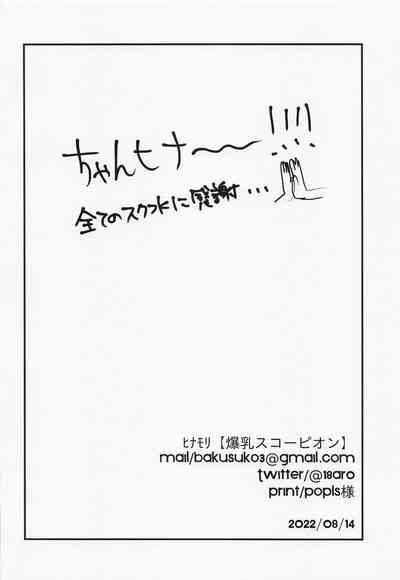 ちゃんヒナ〜〜!!!!
全てのスクフトに感謝...
ﾋﾅﾓﾘ【爆乳スコーピオン】
mail/bakusuko3@gmail.com
twitter/@18aro
print/popls様
2022/08/14